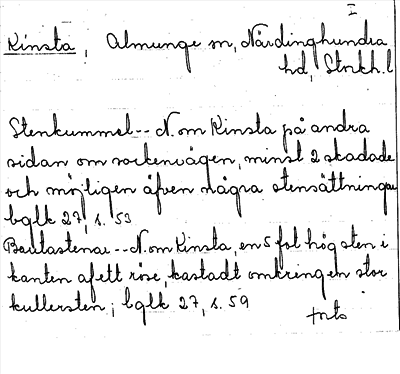 I
Kinsta, Almunge sn, Närdinghundra
hd, Stockh.l
Stenkummel -- N.om Kinsta på andra
sidan om sockenvägen, minst 2 skadade
och möjligen äfven några stensättningar
bglk 27, s. 53
Bautastenar -- N.om Kinsta, en 5 fot hög sten i
kanten af ett röse, kastadt omkring en stor
kullersten; bglk 27, s. 59